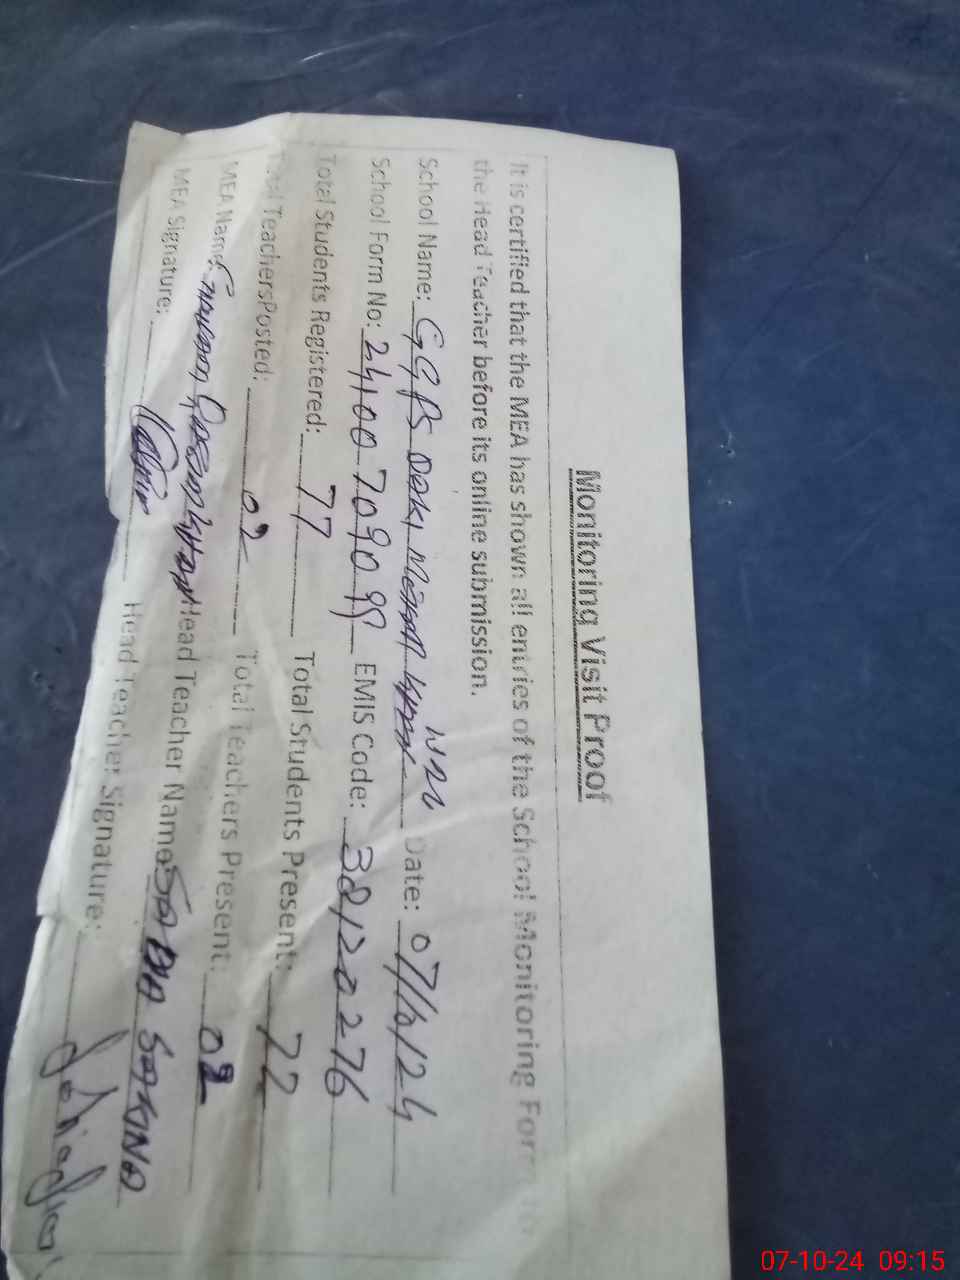 Monitoring Visit Proof
It is certified that the MEA has shown all entries of the School Monitoring Form to
the Head Teacher before its online submission.
School Name: GGPS Date: 07/10/24
School Form No: 24100709099 EMIS Code: 38120276
Total Students Registered: 77 Total Students Present: 72
Total TeachersPosted: 02 Total Teachers Present: 02
MEA Name: Head Teacher Name: SADIA SAKINA
MEA Signature: Head Teacher Signature:
07-10-24 09:15